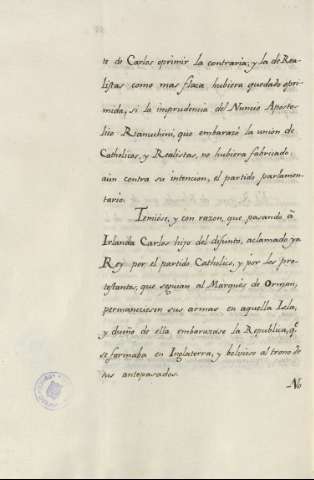 te de Carlos oprimir la contraria; y la de Rea-
listas como mas flaca hubiera quedado opri-
mida, si la imprudencia del Nuncio Aposto-
lico Rianuchini, que embarazó la unión de
Catholicos, y Realistas, no hubiera fabricado,
aún contra su intencion, el partido parlamen-
tario.
Temiése, y con razon, que pasando à
Irlanda Carlos hijo del difunto, aclamado ya
Rey por el partido Catholico, y por los pro-
testantes, que seguian al Marqués de Orman,
permaneciesen sus armas en aquella Isla,
y dueño de ella embarazase la Republica, q.e
se formaba en Inglaterra, y bolviese al trono de
sus antepasados.
No